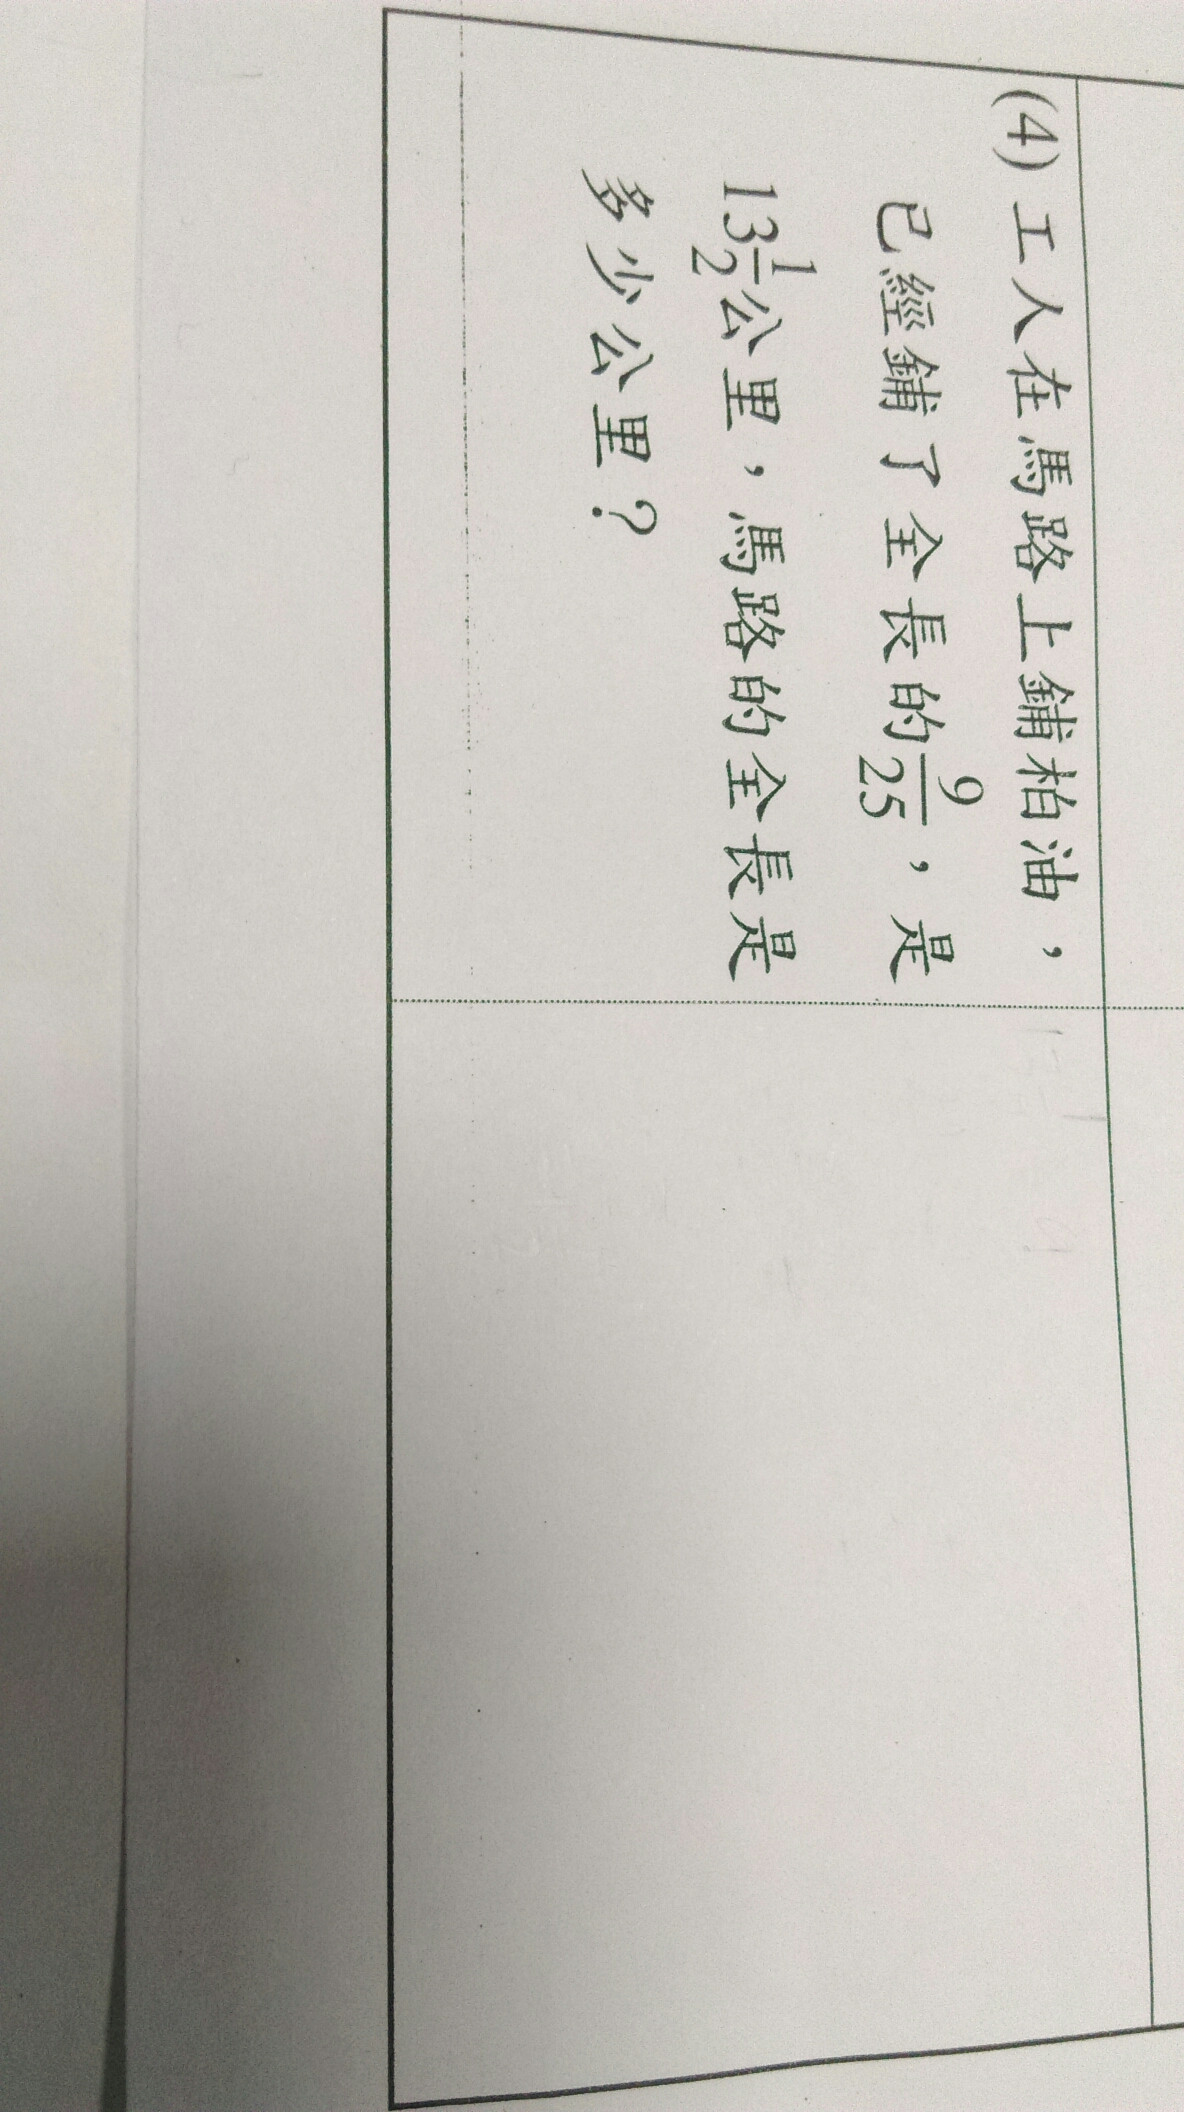 (4) 工人在馬路上鋪柏油，
已經鋪了全長的9/25，是
13 1/2公里，馬路的全長是
多少公里？